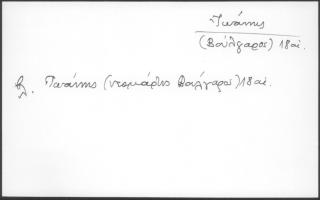 Ἰωάννης
(Βούλγαρος) 18 αἰ.
βλ. Ἰωάννης (ντομάρτις Βούλγαρος) 18 αἰ.